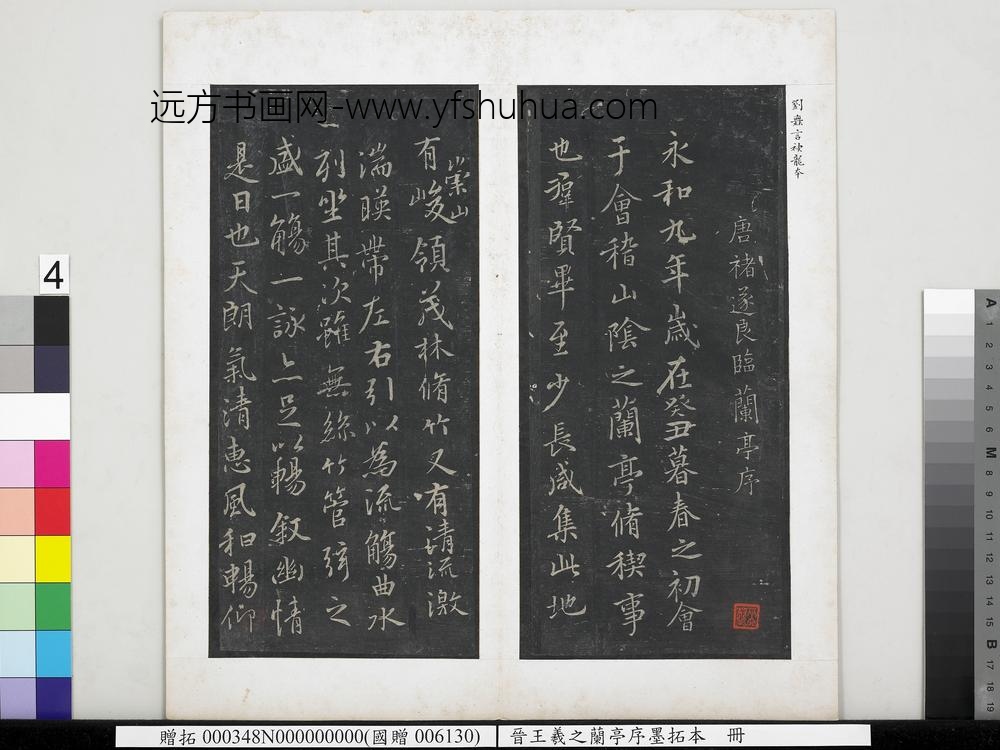 远方书画网-www.yfshuhua.com
唐褚遂良臨蘭亭序
永和九年歲在癸丑暮春之初會
于會稽山陰之蘭亭脩稧事
也羣賢畢至少長咸集此地
有崇山峻領茂林脩竹又有清流激
湍暎帶左右引以為流觴曲水
二
列坐其次雖無絲竹管弦之
盛一觴一詠亦足以暢敘幽情
是日也天朗氣清惠風和暢仰
4
A 1 2 3 4 5 6 M 8 9 10 11 12 13 14 15 B 17 18 19
贈拓 000348N000000000(國贈 006130)
晉王羲之蘭亭序墨拓本 冊